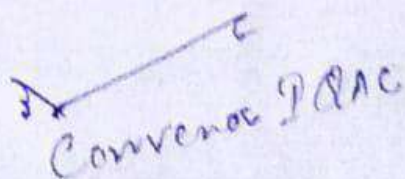 Convenor IQAC